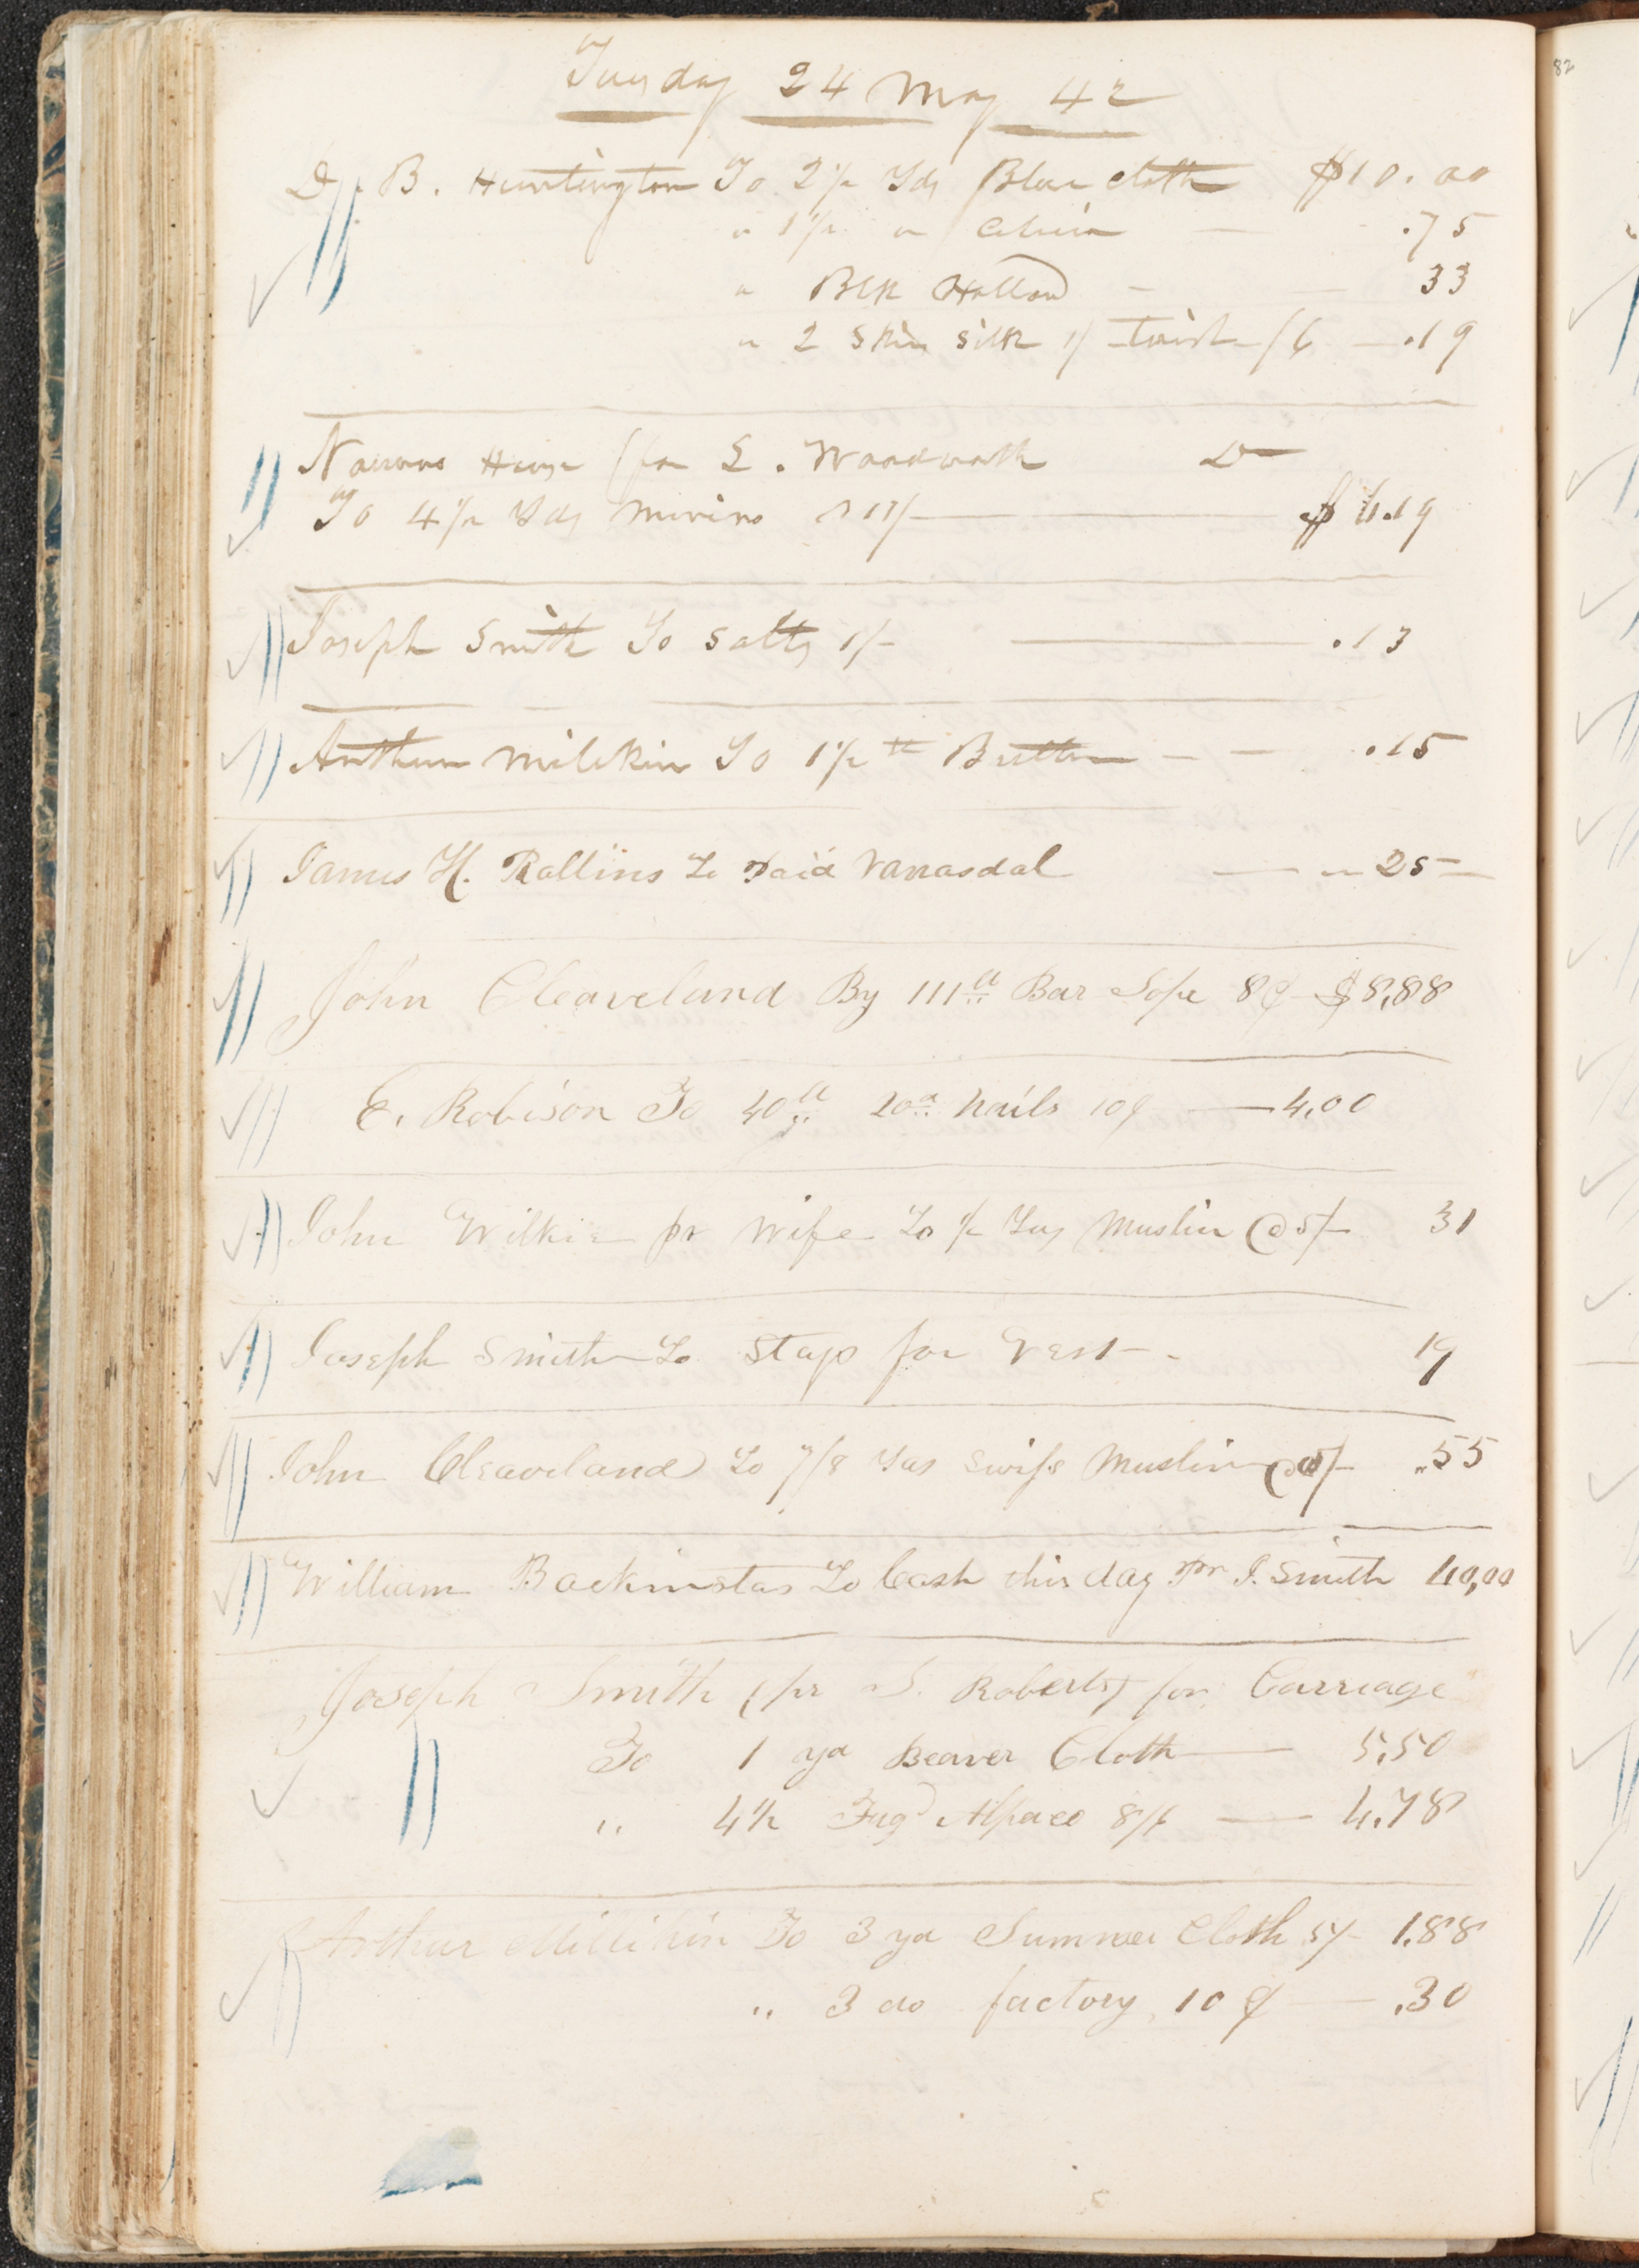 Tuesday 24 May 42
D. B. Huntington To 2 1/2 Yds Blue cloth $10.00
" 1 1/2 " .75
" Blk Holland 33
" 2 Skin Silk 1/ twist /6 .19
Nauvoo House (for L. Woodworth Dr
To 4 1/2 Yds Merino 11/ $6.19
Joseph Smith To Salts 1/- .13
Arthur Milikin To 1 1/2 lb Butter .15
James H. Rollins To Paid Vanasdal " 25
John Cleaveland By 111 lb Bar Sope 8¢ $8,88
E. Robison To 40 lb 20d Nails 10¢ 4,00
John Wilkie pr Wife To 1/2 Yds Muslin @ 5/- 31
Joseph Smith To Stays for Vest 19
John Cleaveland To 7/8 Yds Swiss Muslin @ 5/- .55
William Backinstos To Cash this day pr J. Smith 40,00
Joseph Smith (pr S. Roberts) for Carriage
To 1 yd Beaver Cloth 5,50
" 4 1/2 Fug'd Alpaco 8/6 4.78
Arthur Millikin To 3 yd Summer Cloth 5/- 1.88
" 3 do factory, 10¢ .30
82